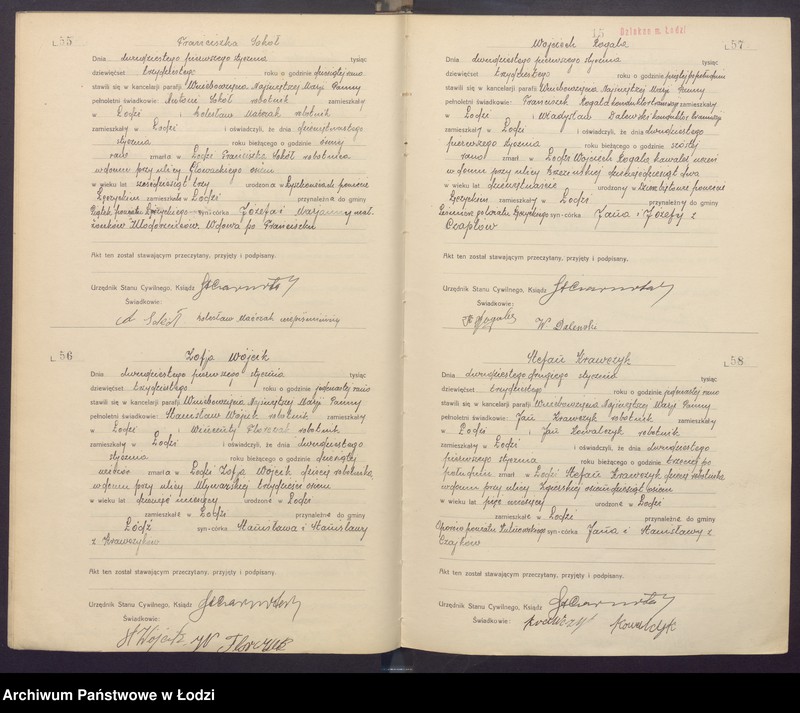 L. 55
Franciszka Sokół
Dnia dwudziestego pierwszego stycznia tysiąc
dziewięćset trzydziestego roku o godzinie dziesiątej rano
stawili się w kancelarji parafji Wniebowzięcia Najświętszej Marji Panny
pełnoletni świadkowie: Antoni Sokół robotnik zamieszkały
w Łodzi i Bolesław Maśczak robotnik
zamieszkały w Łodzi i oświadczyli, że dnia dziewiętnastego
stycznia roku bieżącego o godzinie ósmej
rano zmarła w Łodzi Franciszka Sokół robotnica
w domu przy ulicy Głowackiego osiem
w wieku lat sześćdziesiąt trzy urodzona w powiecie
Łęczyckim zamieszkała w Łodzi przynależne do gminy
Piątek, powiatu Łęczyckiego syn-córka Józefa i Marjanny mał-
żonków Włodarczyków. Wdowa po Franciszku
Akt ten został stawającym przeczytany, przyjęty i podpisany.
Urzędnik Stanu Cywilnego, Ksiądz
Świadkowie:
A Sokół Bolesław Maśczak niepiśmienny
L. 56
Zofja Wójcik
Dnia dwudziestego pierwszego stycznia tysiąc
dziewięćset trzydziestego roku o godzinie jedenastej rano
stawili się w kancelarji parafji Wniebowzięcia Najświętszej Marji Panny
pełnoletni świadkowie: Stanisław Wójcik robotnik zamieszkały
w Łodzi i Wincenty robotnik
zamieszkały w Łodzi i oświadczyli, że dnia dwudziestego
stycznia roku bieżącego o godzinie dziesiątej
wieczór zmarła w Łodzi Zofja Wójcik dziecię robotnika,
w domu przy ulicy Młynarskiej trzydzieści osiem
w wieku lat dziewięć miesięcy urodzone w Łodzi
zamieszkałe w Łodzi przynależne do gminy
Łódź syn-córka Stanisława i Stanisławy
z Krawczyków
Akt ten został stawającym przeczytany, przyjęty i podpisany.
Urzędnik Stanu Cywilnego, Ksiądz
Świadkowie:
St Wójcik W
15 Dzielce m. Łodzi
L. 57
Wojciech Rogala
Dnia dwudziestego pierwszego stycznia tysiąc
dziewięćset trzydziestego roku o godzinie piątej po południu
stawili się w kancelarji parafji Wniebowzięcia Najświętszej Marji Panny
pełnoletni świadkowie: Franciszek Rogala konduktor tramwaj. zamieszkały
w Łodzi i Władysław Dalewski konduktor tramwaj.
zamieszkały w Łodzi i oświadczyli, że dnia dwudziestego
pierwszego stycznia roku bieżącego o godzinie szóstej
rano zmarł w Łodzi Wojciech Rogala kawaler uczeń
w domu przy ulicy Brzezińskiej dwa
w wieku lat dziewiętnaście urodzony w powiecie
Łęczyckim zamieszkały w Łodzi przynależny do gminy
powiatu Łęczyckiego syn-córka Jana i Józefy z
Czaplów
Akt ten został stawającym przeczytany, przyjęty i podpisany.
Urzędnik Stanu Cywilnego, Ksiądz
Świadkowie:
Fr Rogala W. Dalewski
L. 58
Stefan Krawczyk
Dnia dwudziestego drugiego stycznia tysiąc
dziewięćset trzydziestego roku o godzinie jedenastej rano
stawili się w kancelarji parafji Wniebowzięcia Najświętszej Marji Panny
pełnoletni świadkowie: Jan Krawczyk robotnik zamieszkały
w Łodzi i Jan Kowalczyk robotnik
zamieszkały w Łodzi i oświadczyli, że dnia dwudziestego
pierwszego stycznia roku bieżącego o godzinie trzeciej po
południu zmarł w Łodzi Stefan Krawczyk dziecię robotnika
w domu przy ulicy Zgierskiej osiemdziesiąt osiem
w wieku lat pięć miesięcy urodzone w Łodzi
zamieszkałe w Łodzi przynależne do gminy
powiatu syn-córka Jana i Stanisławy z
Czajków
Akt ten został stawającym przeczytany, przyjęty i podpisany.
Urzędnik Stanu Cywilnego, Ksiądz
Świadkowie: Krawczyk Kowalczyk
Archiwum Państwowe w Łodzi